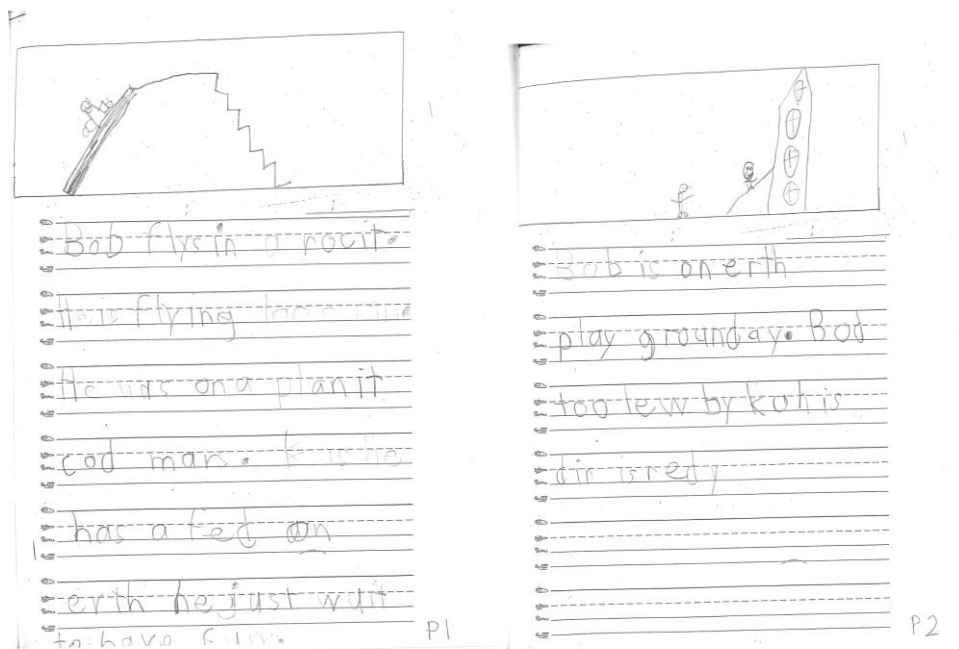 Bob flys in a rocit.
He is flying
He was on a planit
cod mars. is he
has a fed on
erth he just wuit
to have fun.
P1
Bob is on erth
play grounday. Bod
too lew by kah is
dir is redy
P2